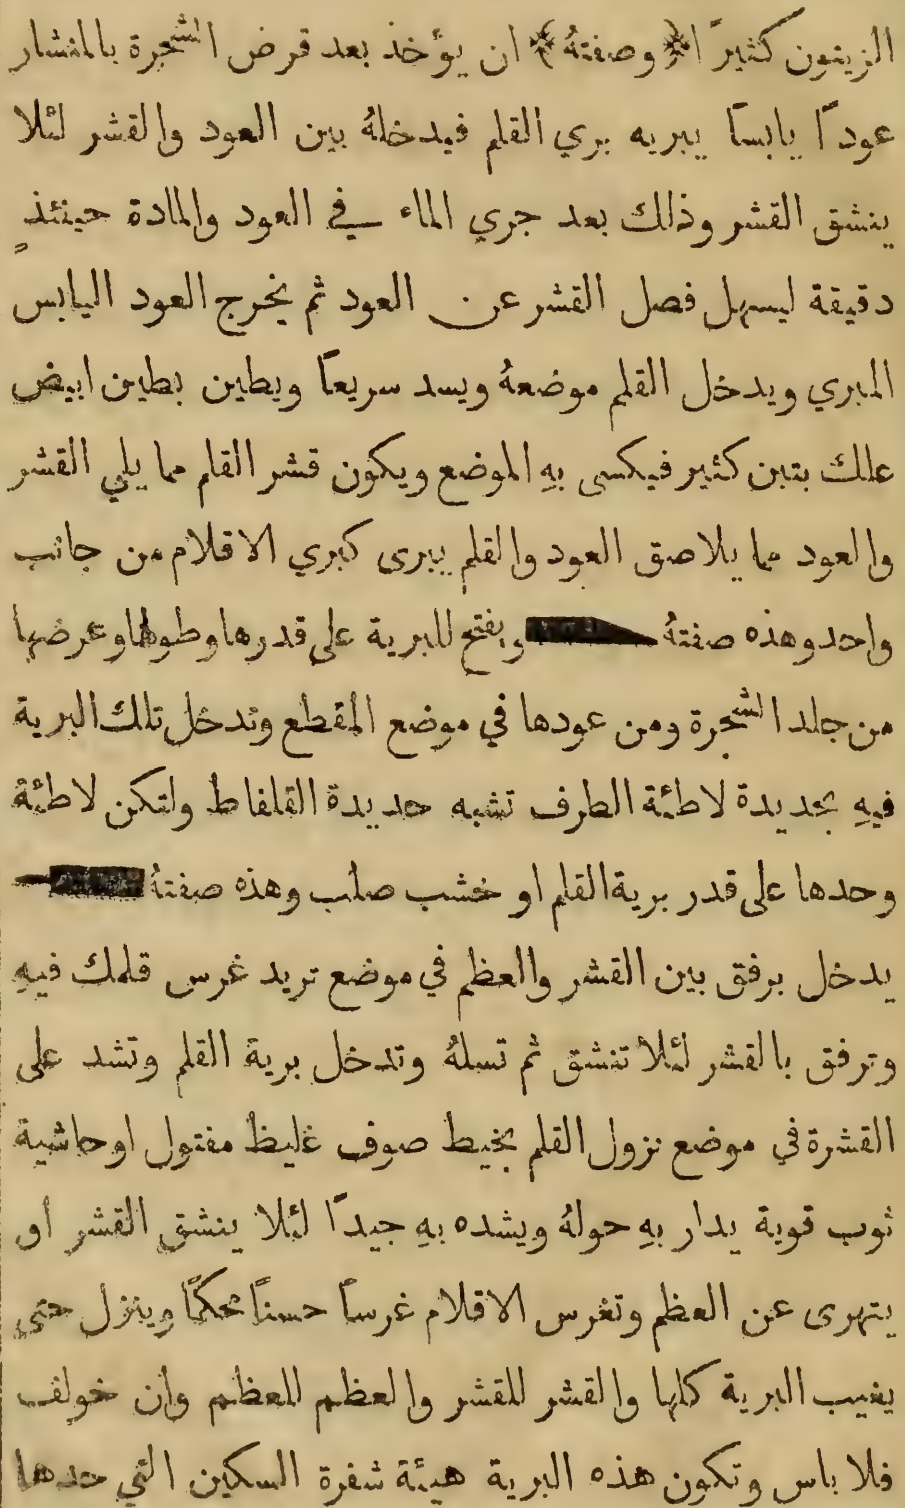 الزيتون كثيرًا ﴿وصفتهُ﴾ ان يؤخذ بعد قرض الشجرة بالمنشار
عودًا يابساً يبريه بري القلم فيدخلهُ بين العود والقشر لئلا
ينشق القشر وذلك بعد جري الماء في العود والمادة حينئذٍ
دقيقة ليسهل فصل القشر عن العود ثم يخرج العود اليابس
المبري ويدخل القلم موضعهُ ويسد سريعاً ويطين بطين ابيض
علك بتبن كثير فيكسى بهِ الموضع ويكون قشر القلم مما يلي القشر
والعود مما يلاصق العود والقلم يبرى كبري الاقلام من جانب
واحد وهذه صفتهُ ويفتح للبرية على قدرها وطولها وعرضها
من جلد الشجرة ومن عودها في موضع المقطع وتدخل تلك البرية
فيهِ بحديدة لاطئة الطرف تشبه حديدة القلفاط ولتكن لاطئة
وحدها على قدر برية القلم او خشب صلب وهذه صفتهُ
يدخل برفق بين القشر والعظم في موضع تريد غرس قلمك فيهِ
وترفق بالقشر لئلا تنشق ثم تسلهُ وتدخل برية القلم وتشد على
القشرة في موضع نزول القلم بخيط صوف غليظ مفتول او حاشية
ثوب قوية يدار بهِ حولهُ ويشده بهِ جيدًا لئلا ينشق القشر او
يتهرى عن العظم وتغرس الاقلام غرساً حسناً محكمًا وينزل حتى
يغيب البرية كلها والقشر للقشر والعظم للعظم وان خولف
فلا باس وتكون هذه البرية هيئة شفرة السكين التي حدها